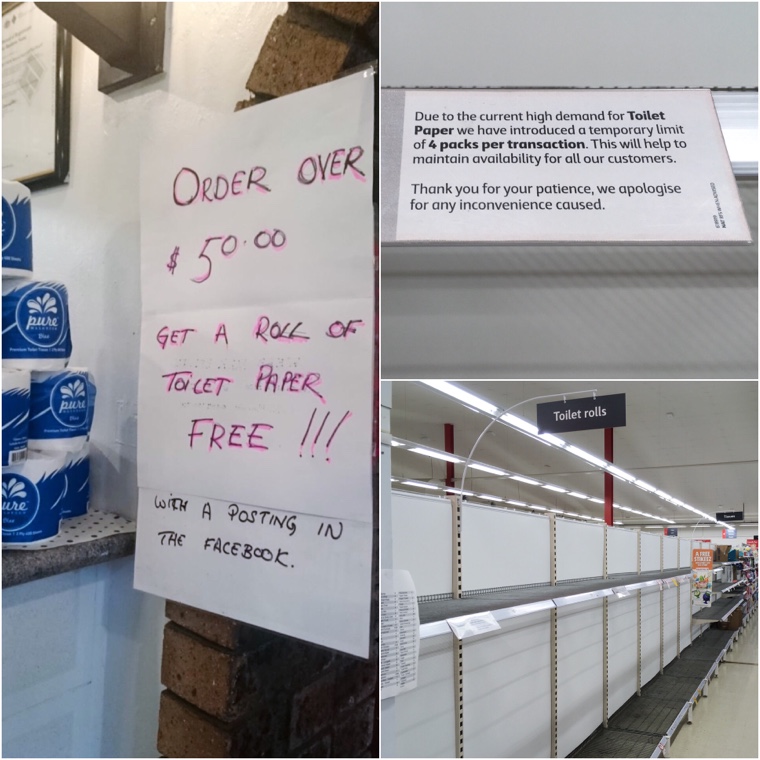 ORDER OVER
$ 50.00
GET A ROLL OF
TOILET PAPER
FREE !!!
WITH A POSTING IN
THE FACEBOOK.
pure
pure
pure
Due to the current high demand for Toilet
Paper we have introduced a temporary limit
of 4 packs per transaction. This will help to
maintain availability for all our customers.
Thank you for your patience, we apologise
for any inconvenience caused.
Toilet rolls
Tissues